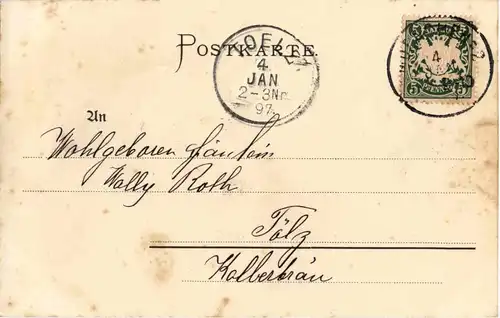 POSTKARTE.
TOELZ
4
JAN
2-3Nm
97
4
5 5
An
Wohlgeboren Fräulein
Wally Roth
Tölz
Kolberbräu